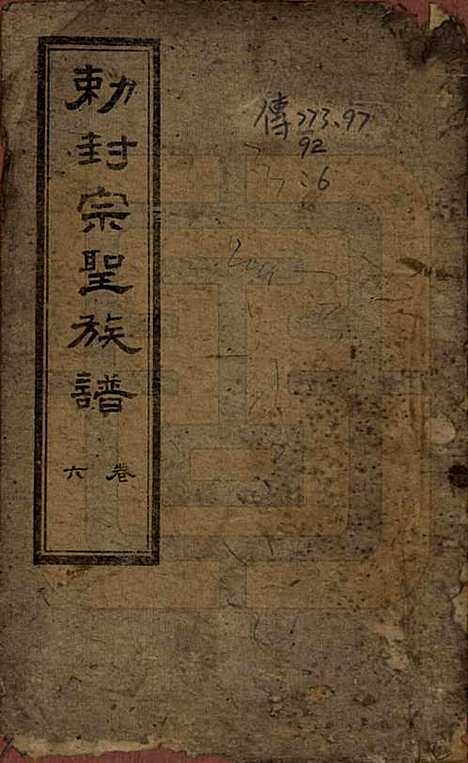 勅封宗聖族譜
卷六
傳773.97
92
:6